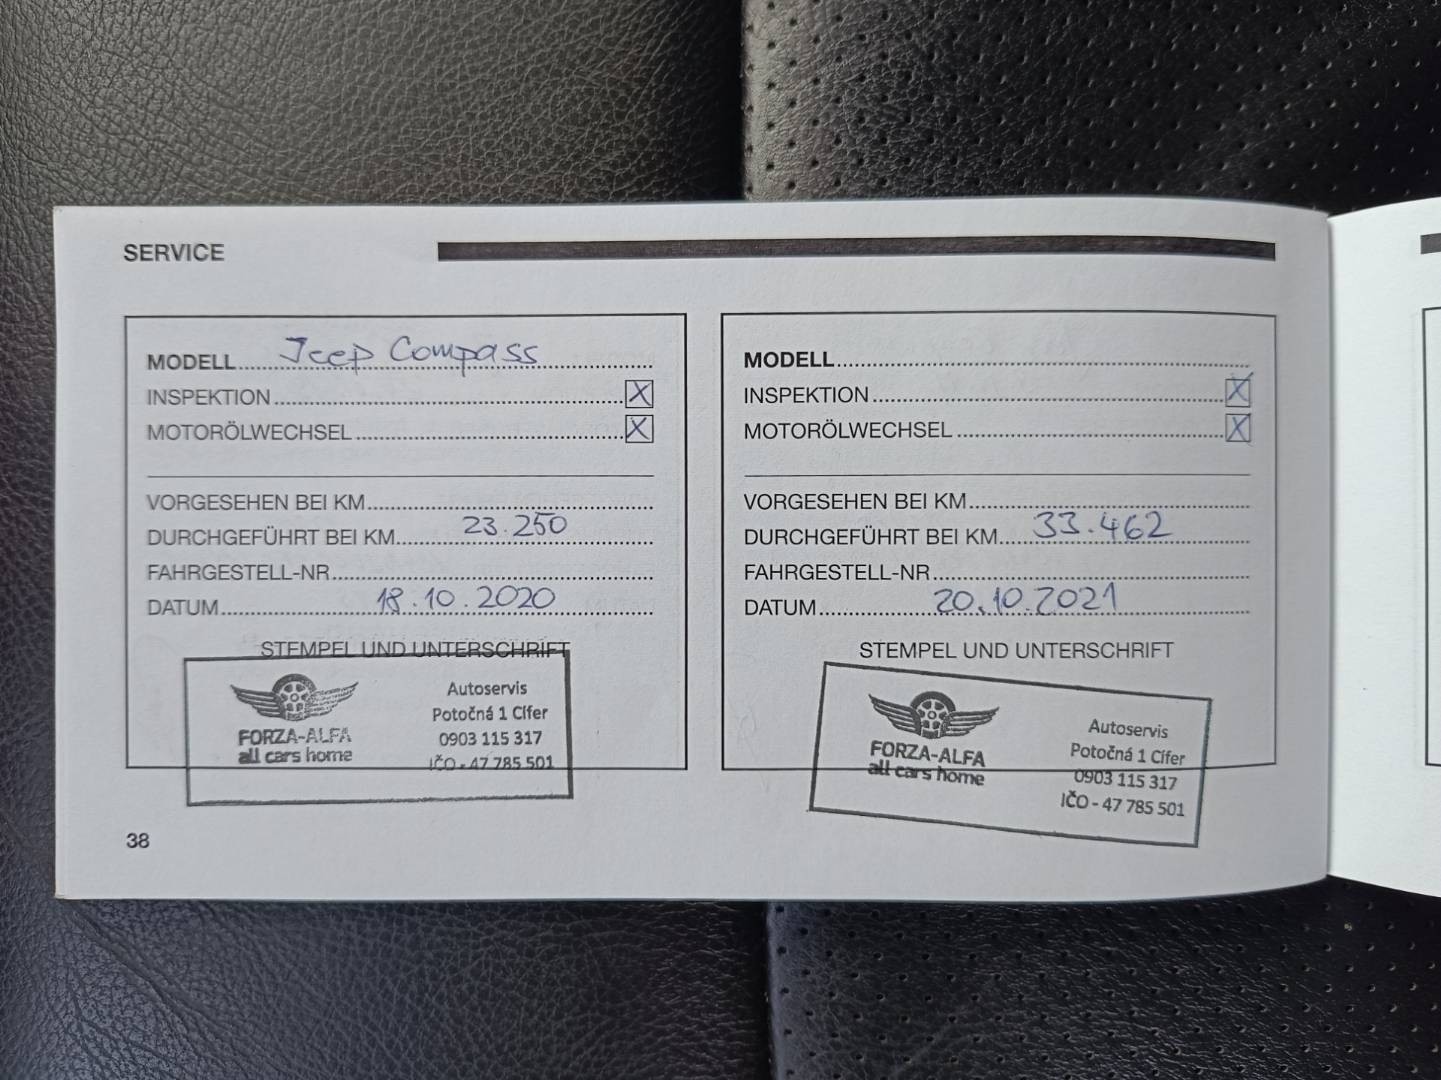 SERVICE
MODELL Jeep Compass
INSPEKTION X
MOTORÖLWECHSEL X
VORGESEHEN BEI KM
DURCHGEFÜHRT BEI KM 23.250
FAHRGESTELL-NR
DATUM 18.10.2020
STEMPEL UND UNTERSCHRIFT
FORZA-ALFA
all cars home
Autoservis
Potočná 1 Cífer
0903 115 317
IČO - 47 785 501
38
MODELL
INSPEKTION X
MOTORÖLWECHSEL X
VORGESEHEN BEI KM
DURCHGEFÜHRT BEI KM 33.462
FAHRGESTELL-NR
DATUM 20.10.2021
STEMPEL UND UNTERSCHRIFT
FORZA-ALFA
all cars home
Autoservis
Potočná 1 Cífer
0903 115 317
IČO - 47 785 501